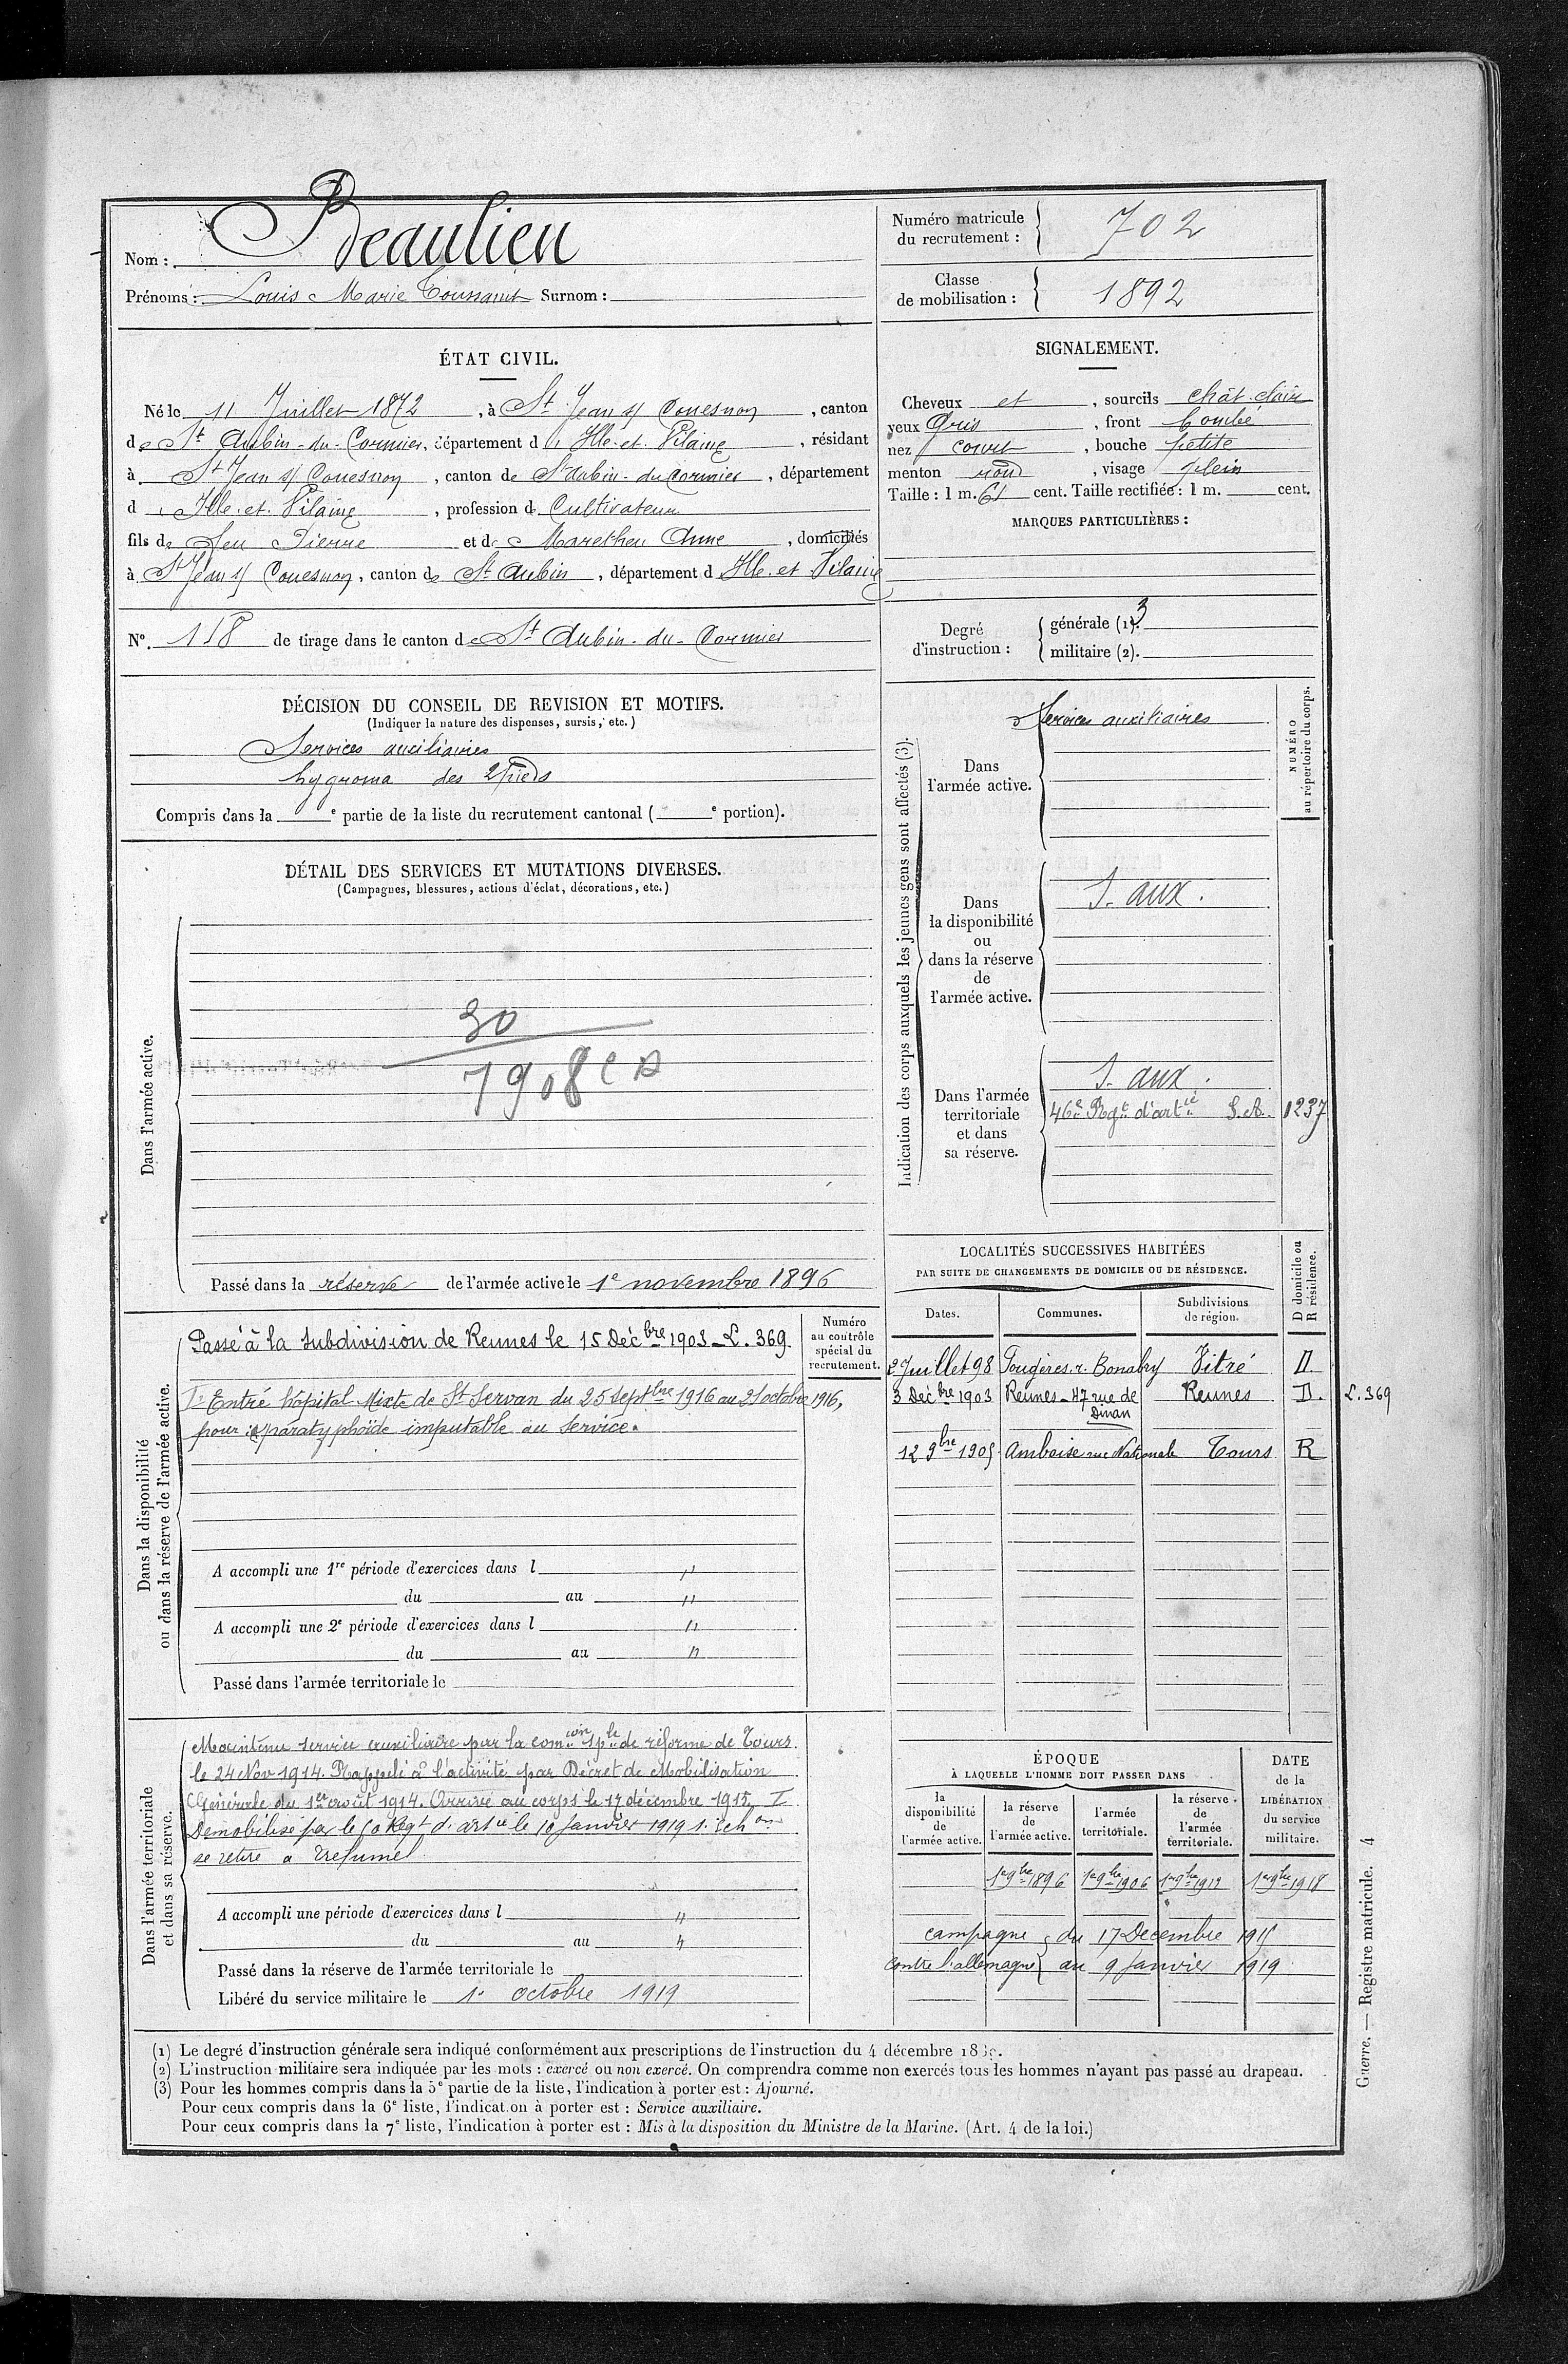 Nom : Beaulieu
Prénoms : Louis Marie Toussaint Surnom :
Numéro matricule du recrutement : 702
Classe de mobilisation : 1892
ÉTAT CIVIL.
Né le 11 Juillet 1872, à St Jean s/ Couesnon, canton
de St Aubin-du-Cormier, département d'Ille-et-Vilaine, résidant
à St Jean s/ Couesnon, canton de St Aubin-du-Cormier, département
d'Ille-et-Vilaine, profession de Cultivateur
fils de feu Pierre et de Maretheu Anne, domiciliés
à St Jean s/ Couesnon, canton de St Aubin, département d Ille et Vilaine
N° 118 de tirage dans le canton de St Aubin-du-Cormier
SIGNALEMENT.
Cheveux et, sourcils chât. clair
yeux Gris, front bombé
nez court, bouche petite
menton rond, visage plein
Taille : 1 m. 61 cent. Taille rectifiée : 1 m. cent.
MARQUES PARTICULIÈRES :
Degré d'instruction :
générale (1). 3
militaire (2).
DÉCISION DU CONSEIL DE REVISION ET MOTIFS.
(Indiquer la nature des dispenses, sursis, etc.)
Services auxiliaires
hygroma des 2 pieds
Compris dans la e partie de la liste du recrutement cantonal ( e portion).
DÉTAIL DES SERVICES ET MUTATIONS DIVERSES.
(Campagnes, blessures, actions d'éclat, décorations, etc.)
Dans l'armée active.
30
1908
Passé dans la réserve de l'armée active le 1e novembre 1896
Indication des corps auxquels les jeunes gens sont affectés (3).
NUMÉRO au répertoire du corps.
Dans l'armée active.
Services auxiliaires
Dans la disponibilité ou dans la réserve de l'armée active.
S. aux.
Dans l'armée territoriale et dans sa réserve.
S. aux.
46e Rgt d'artie S.A. 1237
Dans la disponibilité ou dans la réserve de l'armée active.
Numéro au contrôle spécial du recrutement.
Passé à la subdivision de Rennes le 15 Décbre 1903 - L. 369
Entré hôpital Mixte de St Servan du 25 septbre 1916 au 21 octobre 1916,
pour : paratyphoïde imputable au service.
A accompli une 1re période d'exercices dans l "
du au "
A accompli une 2e période d'exercices dans l "
du au "
Passé dans l'armée territoriale le
LOCALITÉS SUCCESSIVES HABITÉES
PAR SUITE DE CHANGEMENTS DE DOMICILE OU DE RÉSIDENCE.
D domicile ou R résidence.
Dates. Communes. Subdivisions de région.
2 Juillet 98 Fougères r. Bonabry Vitré D
3 Décbre 1903 Rennes - 47 rue de Dinan Rennes D. L. 369
12 9bre 1905 Amboise rue Nationale Tours R
Dans l'armée territoriale et dans sa réserve.
Maintenu service auxiliaire par la comon sple de réforme de Tours
le 24 Nov 1914. Rappelé à l'activité par Décret de Mobilisation
Générale du 1er août 1914. Arrivé au corps le 17 décembre 1915. I
Démobilisé par le 10 Regt d'artie le 10 Janvier 1919 1. Echon
se retire à Trefumel
A accompli une période d'exercices dans l "
du au "
Passé dans la réserve de l'armée territoriale le
Libéré du service militaire le 1er octobre 1919
ÉPOQUE
À LAQUELLE L'HOMME DOIT PASSER DANS
la disponibilité de l'armée active.
la réserve de l'armée active.
l'armée territoriale.
la réserve de l'armée territoriale.
DATE de la LIBÉRATION du service militaire.
1er 9bre 1896 1er 9bre 1906 1er 9bre 1912 1er 9bre 1918
campagne du 17 Décembre 1915
contre l'allemagne au 9 Janvier 1919
(1) Le degré d'instruction générale sera indiqué conformément aux prescriptions de l'instruction du 4 décembre
(2) L'instruction militaire sera indiquée par les mots : exercé ou non exercé. On comprendra comme non exercés tous les hommes n'ayant pas passé au drapeau.
(3) Pour les hommes compris dans la 5e partie de la liste, l'indication à porter est : Ajourné.
Pour ceux compris dans la 6e liste, l'indication à porter est : Service auxiliaire.
Pour ceux compris dans la 7e liste, l'indication à porter est : Mis à la disposition du Ministre de la Marine. (Art. 4 de la loi.)
Guerre. — Registre matricule. 4